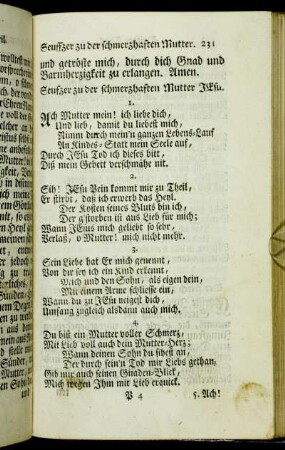 Seuffzer zu der schmerzhaften Mutter. 231
und getröste mich, durch dich Gnad und
Barmherzigkeit zu erlangen. Amen.
Seufzer zu der schmerzhaften Mutter JEsu.
1.
Ach Mutter mein! ich liebe dich,
Und lieb, damit du liebest mich,
Nimm durch mein'n ganzen Lebens-Lauf
An Kindes-Statt mein Seele auf,
Durch JEsu Tod ich dieses bitt,
Diß mein Gebett verschmähe nit.
2.
Sih! JEsu Pein kommt mir zu Theil,
Er stirbt, daß ich erwerb das Heyl.
Der Kosten seines Bluts bin ich,
Der g'storben ist aus Lieb für mich;
Wann JEsus mich geliebt so sehr,
Verlaß, o Mutter! mich nicht mehr.
3.
Sein Liebe hat Er mich genennt,
Von dir sey ich ein Kind erkennt,
Mich und den Sohn, als eigen dein,
Mit einem Arme schliesse ein,
Wann du zu JEsu neigest dich,
Umfang zugleich alsdann auch mich.
4.
Du bist ein Mutter voller Schmerz,
Mit Lieb voll auch dein Mutter-Herz;
Wann deinen Sohn du sihest an,
Der durch sein'n Tod mir Liebs gethan,
Gib mir auch seinen Gnaden-Blick,
Mich wegen Ihm mit Lieb erquick.
P 4 5. Ach!